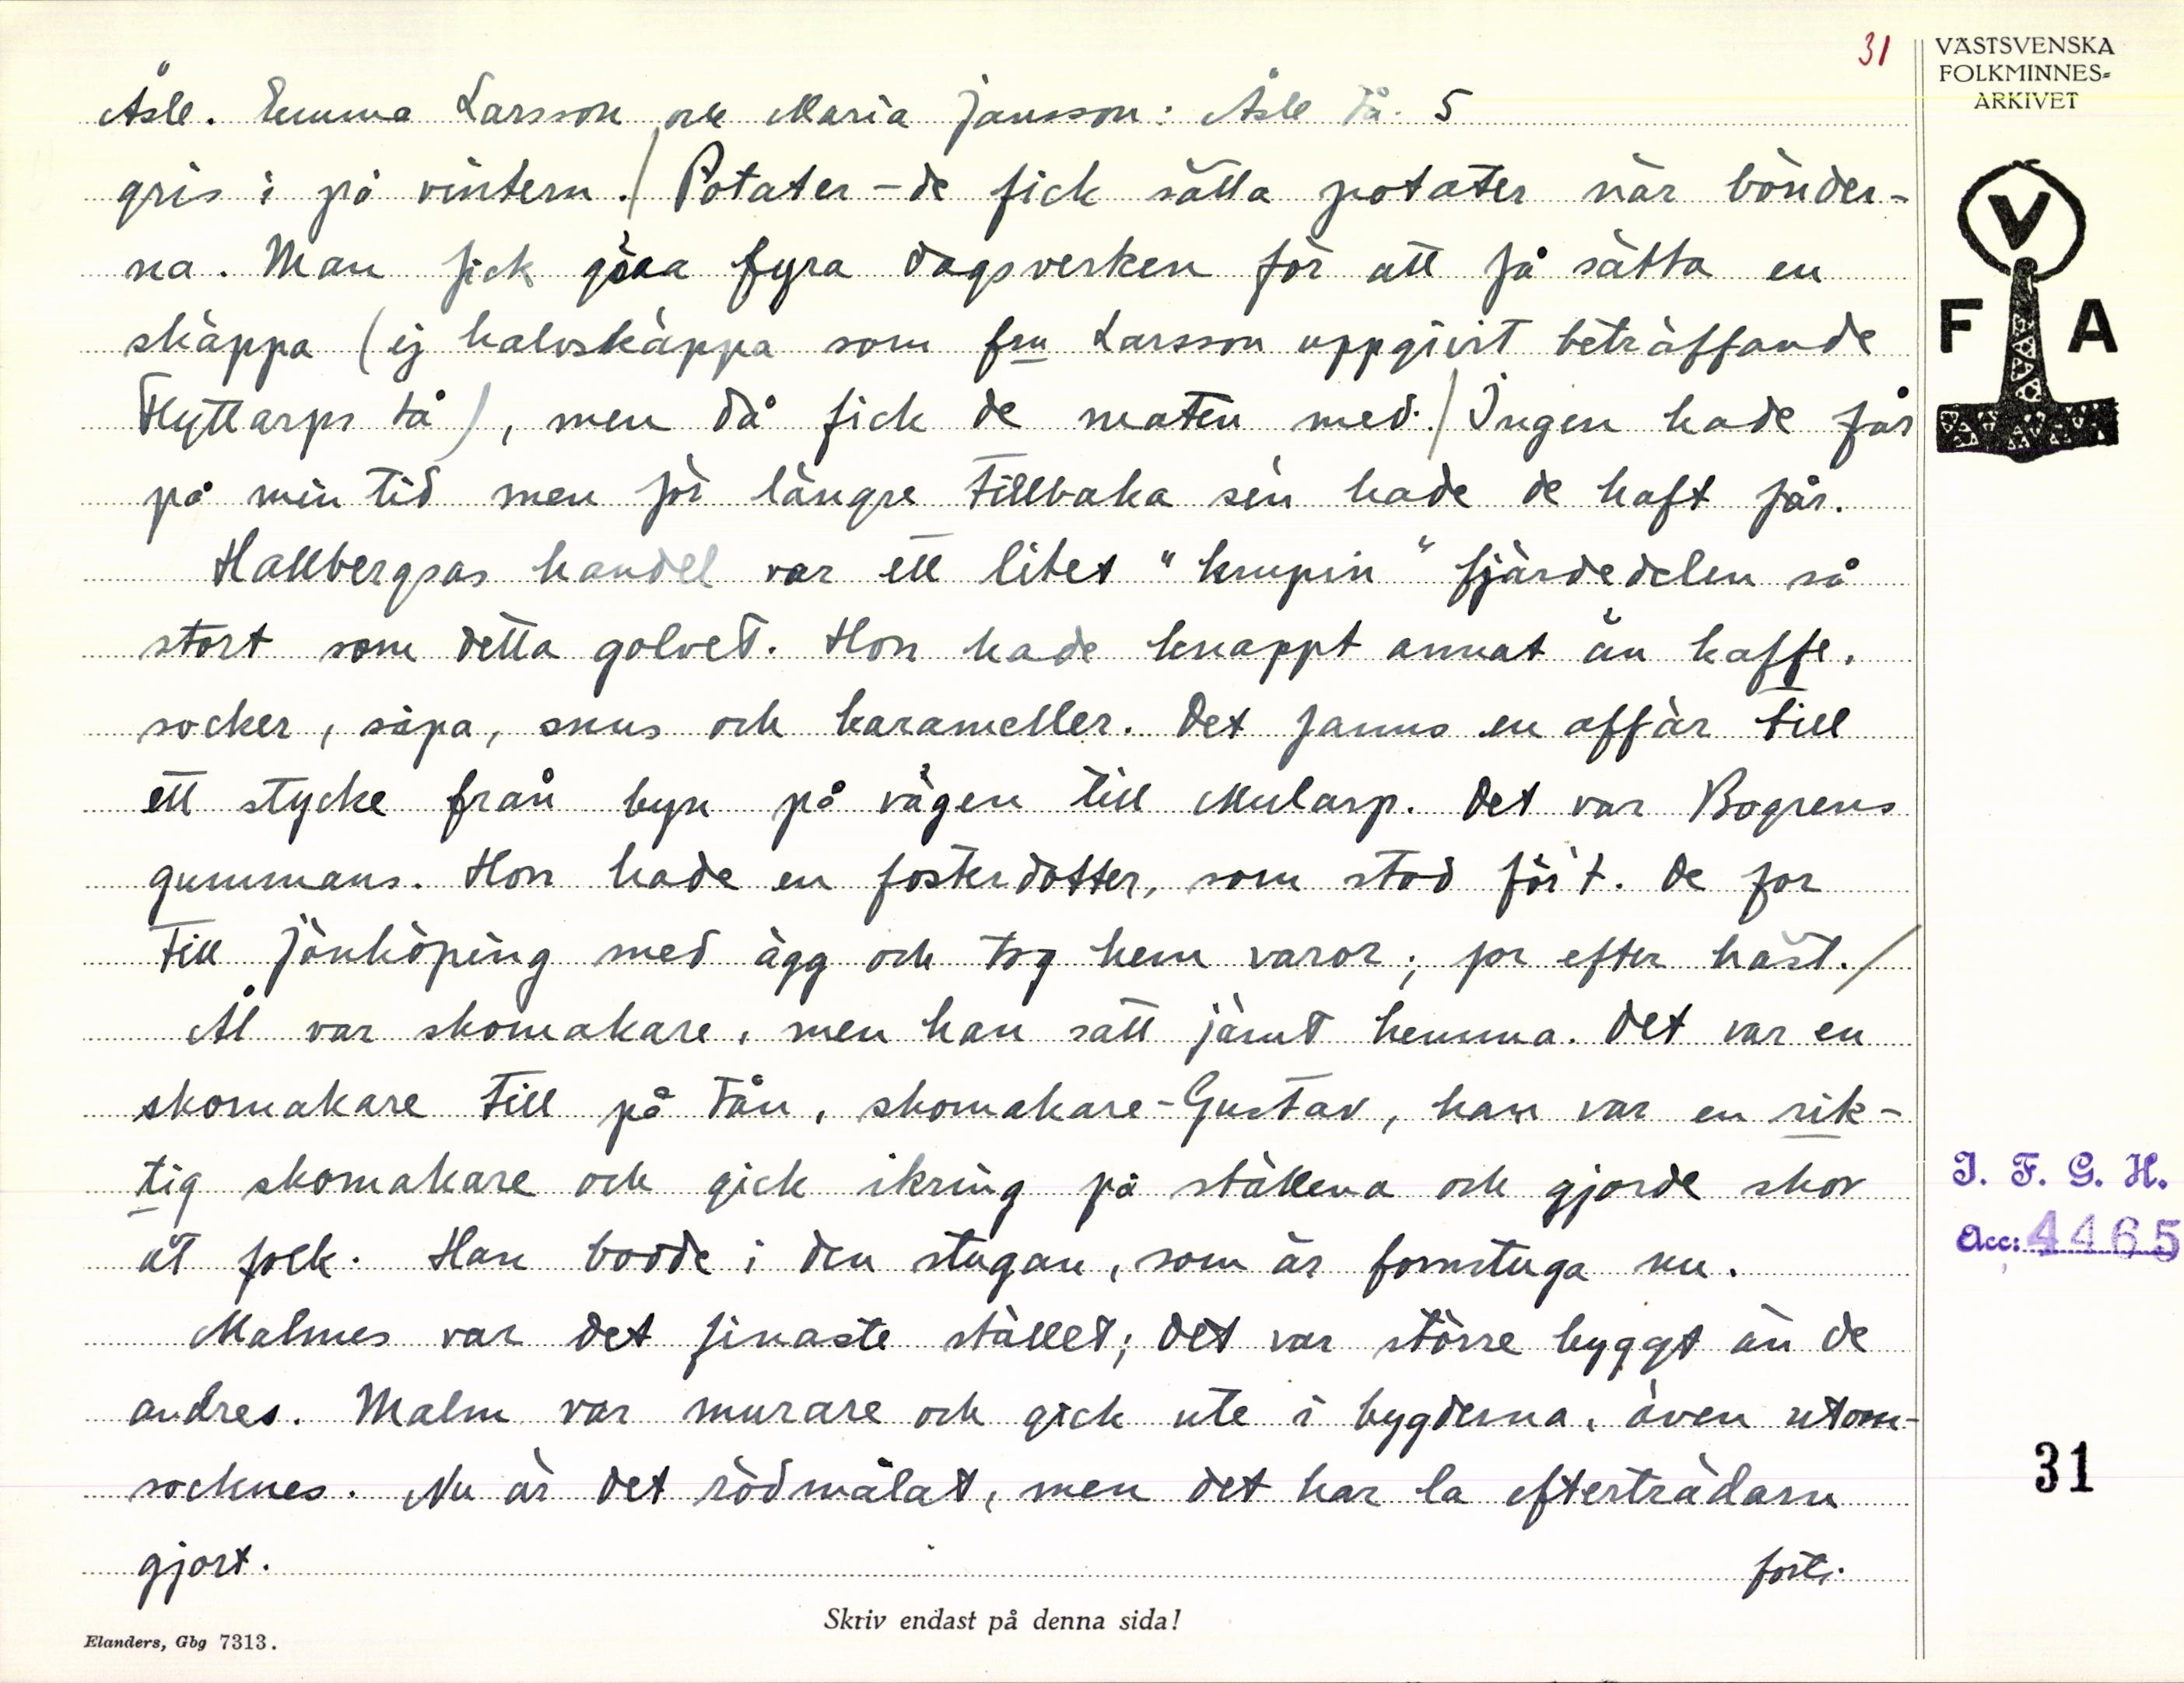 31
VÄSTSVENSKA
FOLKMINNES-
ARKIVET
Åsle. Emma Larsson och Maria Jansson: Åsle Tå. 5
gris i på vintern./ Potater - de fick sätta potater när bönder-
na. Man fick göra fyra dagsverken för att få sätta en
skäppa (ej halvskäppa som fru Larsson uppgivit beträffande
Hyttarps tå), men då fick de maten med./ Ingen hade får
på min tid men för längre tillbaka sèn hade de haft får.
Hallbergsas handel var ett litet "krupin" fjärdedelen så
stort som detta golvet. Hon hade knappt annat än kaffe,
socker, såpa, snus och karameller. Det fanns en affär till
ett stycke från byn på vägen till Mularp. Det var Bogrens
gummans. Hon hade en fosterdotter, som stod för't. De for
till Jönköping med ägg och tog hem varor; for efter häst./
Ål var skomakare, men han satt jämt hemma. Det var en
skomakare till på Tån, skomakare-Gustav, han var en rik-
tig skomakare och gick ikring på ställena och gjorde skor
åt folk. Han bodde i den stugan, som är fornstuga nu.
Malmes var det finaste stället; det var större byggt än de
andres. Malm var murare och gick ute i bygderna, även utom-
socknes. Nu är det rödmålat, men det har la efterträdarn
gjort.
forts.
Skriv endast på denna sida!
Elanders, Gbg 7313.
V
F A
I. F. G. H.
Acc: 4465
31